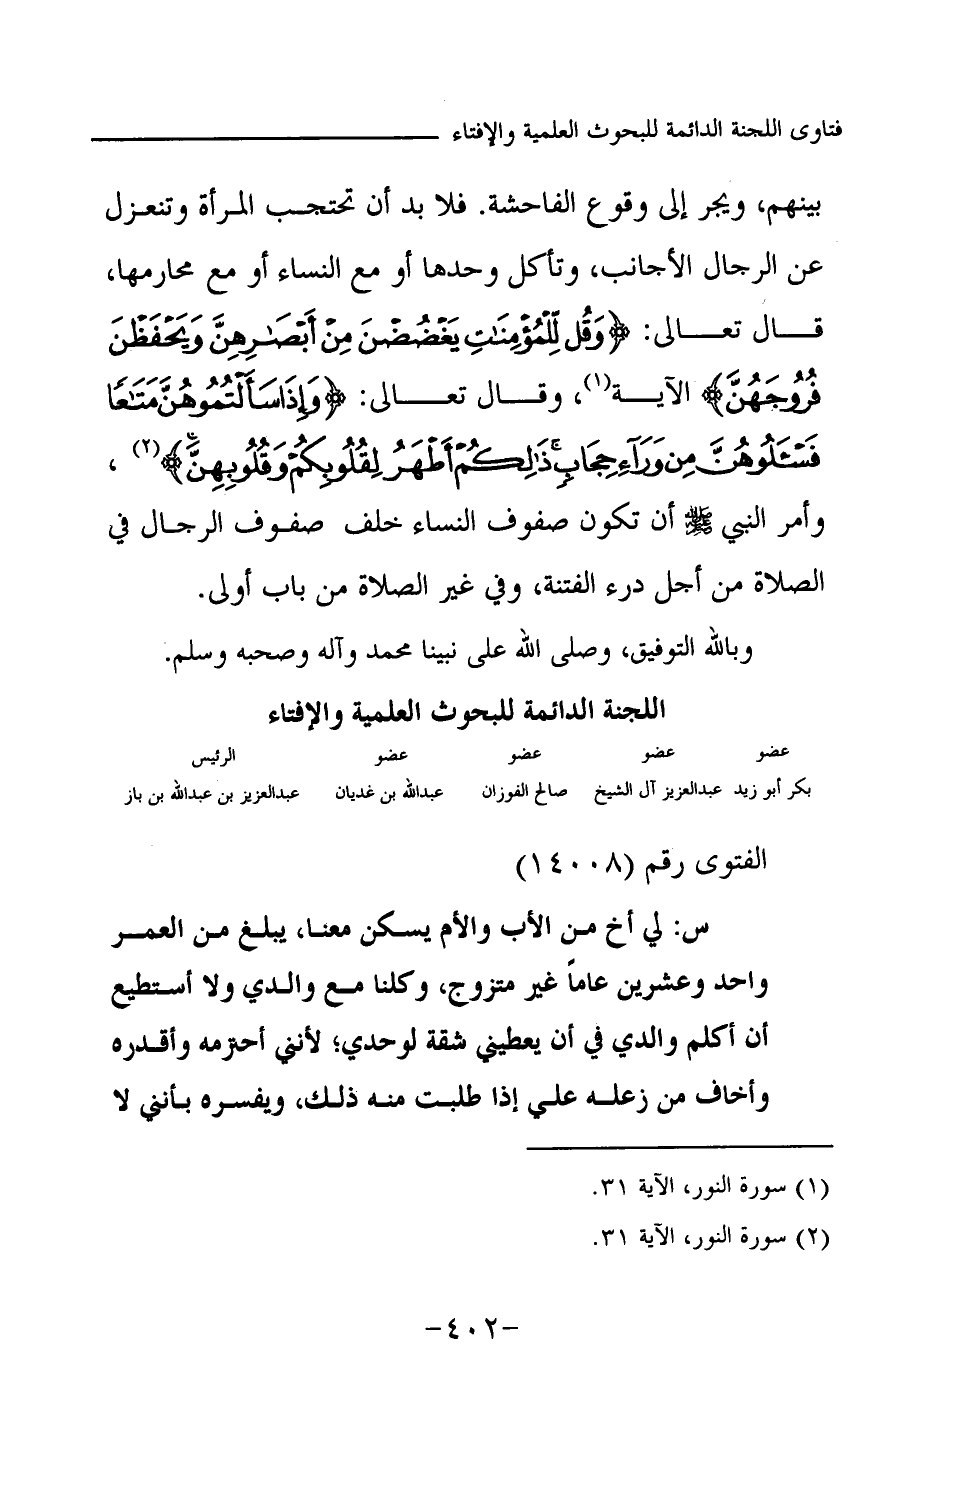 فتاوى اللجنة الدائمة للبحوث العلمية والإفتاء
بينهم، ويجر إلى وقوع الفاحشة. فلا بد أن تحتجب المرأة وتنعزل
عن الرجال الأجانب، وتأكل وحدها أو مع النساء أو مع محارمها،
قال تعالى: ﴿وَقُل لِّلْمُؤْمِنَٰتِ يَغْضُضْنَ مِنْ أَبْصَٰرِهِنَّ وَيَحْفَظْنَ
فُرُوجَهُنَّ﴾ الآية(١)، وقال تعالى: ﴿وَإِذَا سَأَلْتُمُوهُنَّ مَتَٰعًا
فَسْـَٔلُوهُنَّ مِن وَرَآءِ حِجَابٍ ۚ ذَٰلِكُمْ أَطْهَرُ لِقُلُوبِكُمْ وَقُلُوبِهِنَّ ۚ﴾(٢)،
وأمر النبي ﷺ أن تكون صفوف النساء خلف صفوف الرجال في
الصلاة من أجل درء الفتنة، وفي غير الصلاة من باب أولى.
وبالله التوفيق، وصلى الله على نبينا محمد وآله وصحبه وسلم.
اللجنة الدائمة للبحوث العلمية والإفتاء
عضو عضو عضو عضو الرئيس
بكر أبو زيد عبدالعزيز آل الشيخ صالح الفوزان عبدالله بن غديان عبدالعزيز بن عبدالله بن باز
الفتوى رقم (١٤٠٠٨)
س: لي أخ من الأب والأم يسكن معنا، يبلغ من العمر
واحد وعشرين عاماً غير متزوج، وكلنا مع والدي ولا أستطيع
أن أكلم والدي في أن يعطيني شقة لوحدي؛ لأنني أحترمه وأقدره
وأخاف من زعله علي إذا طلبت منه ذلك، ويفسره بأنني لا
(١) سورة النور، الآية ٣١.
(٢) سورة النور، الآية ٣١.
-٤٠٢-